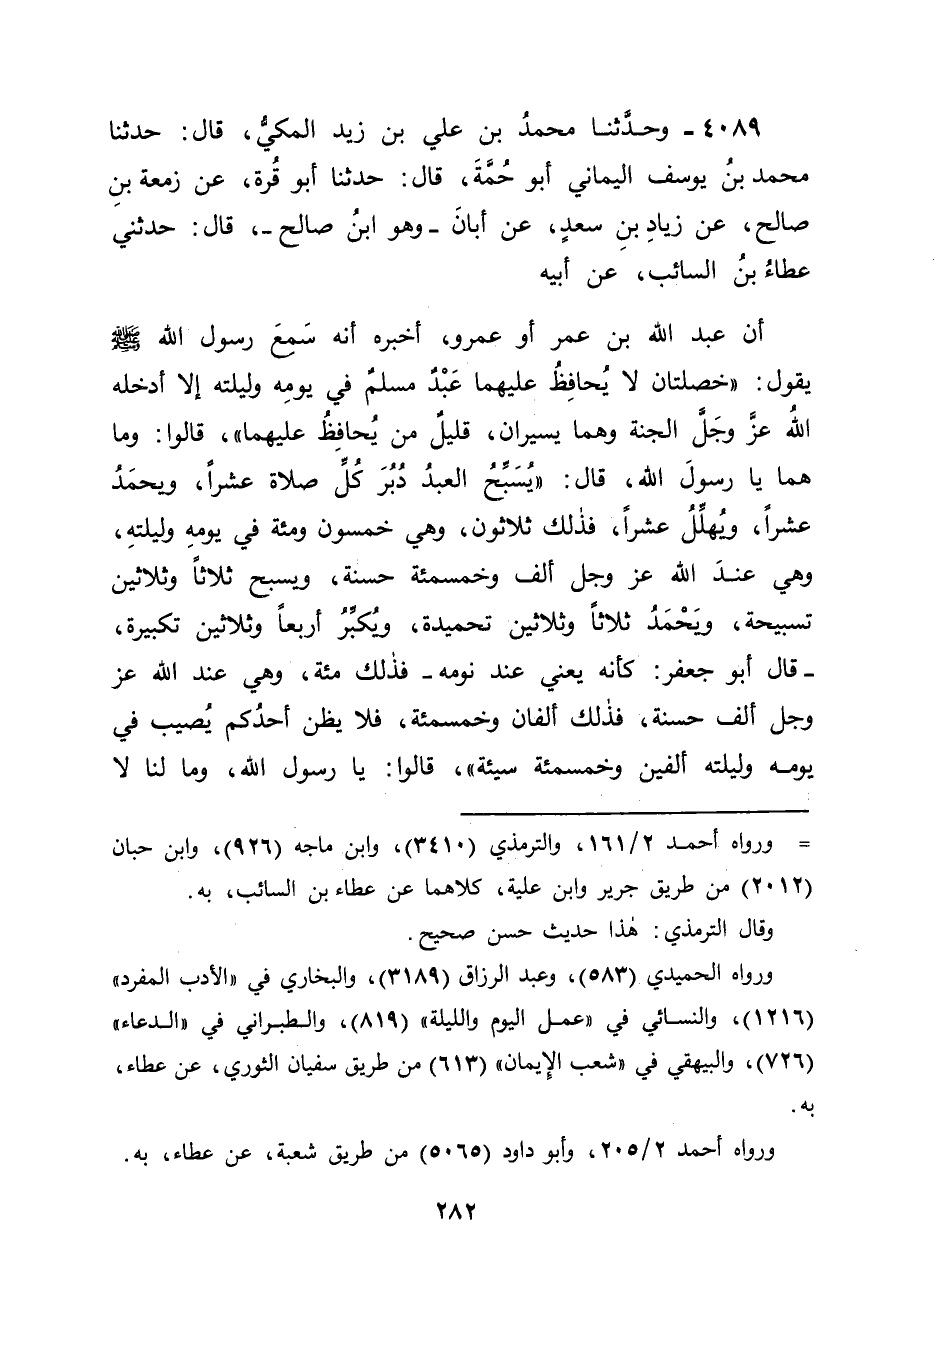 ٤٠٨٩ ـ وحـدَّثنـا محمدُ بن علي بن زيد المكيُّ، قال: حدثنا
محمد بنُ يوسف اليماني أبو حُمَّةَ، قال: حدثنا أبو قُرة، عن زمعة بنِ
صالح، عن زيادِ بنِ سعدٍ، عن أبانَ ـ وهو ابنُ صالح ـ، قال: حدثني
عطاءُ بنُ السائب، عن أبيه
أن عبد الله بن عمر أو عمرو، أخبره أنه سَمِعَ رسول الله ﷺ
يقول: «خصلتان لا يُحافِظُ عليهما عَبْدٌ مسلمٌ في يومِه وليلته إلا أدخله
اللهُ عزَّ وجَلَّ الجنة وهما يسيران، قليلٌ من يُحافِظُ عليهما»، قالوا: وما
هما يا رسولَ الله، قال: «يُسَبِّحُ العبدُ دُبُرَ كُلِّ صلاة عشراً، ويحمَدُ
عشراً، ويُهلِّلُ عشراً، فذٰلك ثلاثون، وهي خمسون ومئة في يومِه وليلتِه،
وهي عنـدَ الله عز وجل ألف وخمسمئة حسنة، ويسبح ثلاثاً وثلاثين
تسبيحة، ويَحْمَدُ ثلاثاً وثلاثين تحميدة، ويُكبِّرُ أربعاً وثلاثين تكبيرة،
ـ قال أبو جعفر: كأنه يعني عند نومه ـ فذٰلك مئة، وهي عند الله عز
وجل ألف حسنة، فذٰلك ألفان وخمسمئة، فلا يظن أحدُكم يُصيب في
يومـه وليلته ألفين وخمسمئة سيئة»، قالوا: يا رسول الله، وما لنا لا
= ورواه أحمـد ١٦١/٢، والترمذي (٣٤١٠)، وابن ماجه (٩٢٦)، وابن حبان
(٢٠١٢) من طريق جرير وابن علية، كلاهما عن عطاء بن السائب، به.
وقال الترمذي: هٰذا حديث حسن صحيح.
ورواه الحميدي (٥٨٣)، وعبد الرزاق (٣١٨٩)، والبخاري في «الأدب المفرد»
(١٢١٦)، والنسائي في «عمـل اليوم والليلة» (٨١٩)، والـطبـراني في «الـدعاء»
(٧٢٦)، والبيهقي في «شعب الإيمان» (٦١٣) من طريق سفيان الثوري، عن عطاء،
به.
ورواه أحمد ٢٠٥/٢، وأبو داود (٥٠٦٥) من طريق شعبة، عن عطاء، به.
٢٨٢